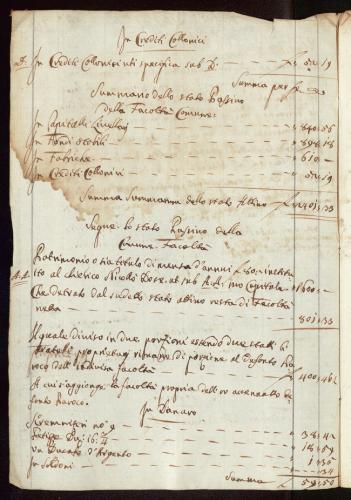 In Crediti Collonici
In Crediti Collonici uti specifica sub D: — f 52:19
Summa per se
Summario dello stato Passivo
della Facoltà Comune:
In Capitalli Livellari — 840:56
In Fondi stabili — 898:18
In Fabriche — 610: —
In Crediti Collonici — 52:19
Summa Summarum dello stato Attivo — f 2401:33
Segue lo stato Passivo della
Comune Facoltà
Patrimonio o sia titulo di mensa d'annui f 80:
to al chierico Nicolò sub A.A: suo Capitale 1600: —
Che detrato dal sudetto stato attivo resta di Facoltà
netta — 801:33
Il quale diviso in due porzioni essendo due stati li
Fratelli proprietarj rimane di porzione al Defonto Pa
roco dell' indivisa facoltà — f 400:46
A cui s'aggionge la facoltà propria dell' or accennato De
fonto Paroco.
In Danaro
no 9 — 38:42
16:4 — 18:59
un Ducato d'Argento — 1:35
In Soldoni — :34
Summa f 59:50